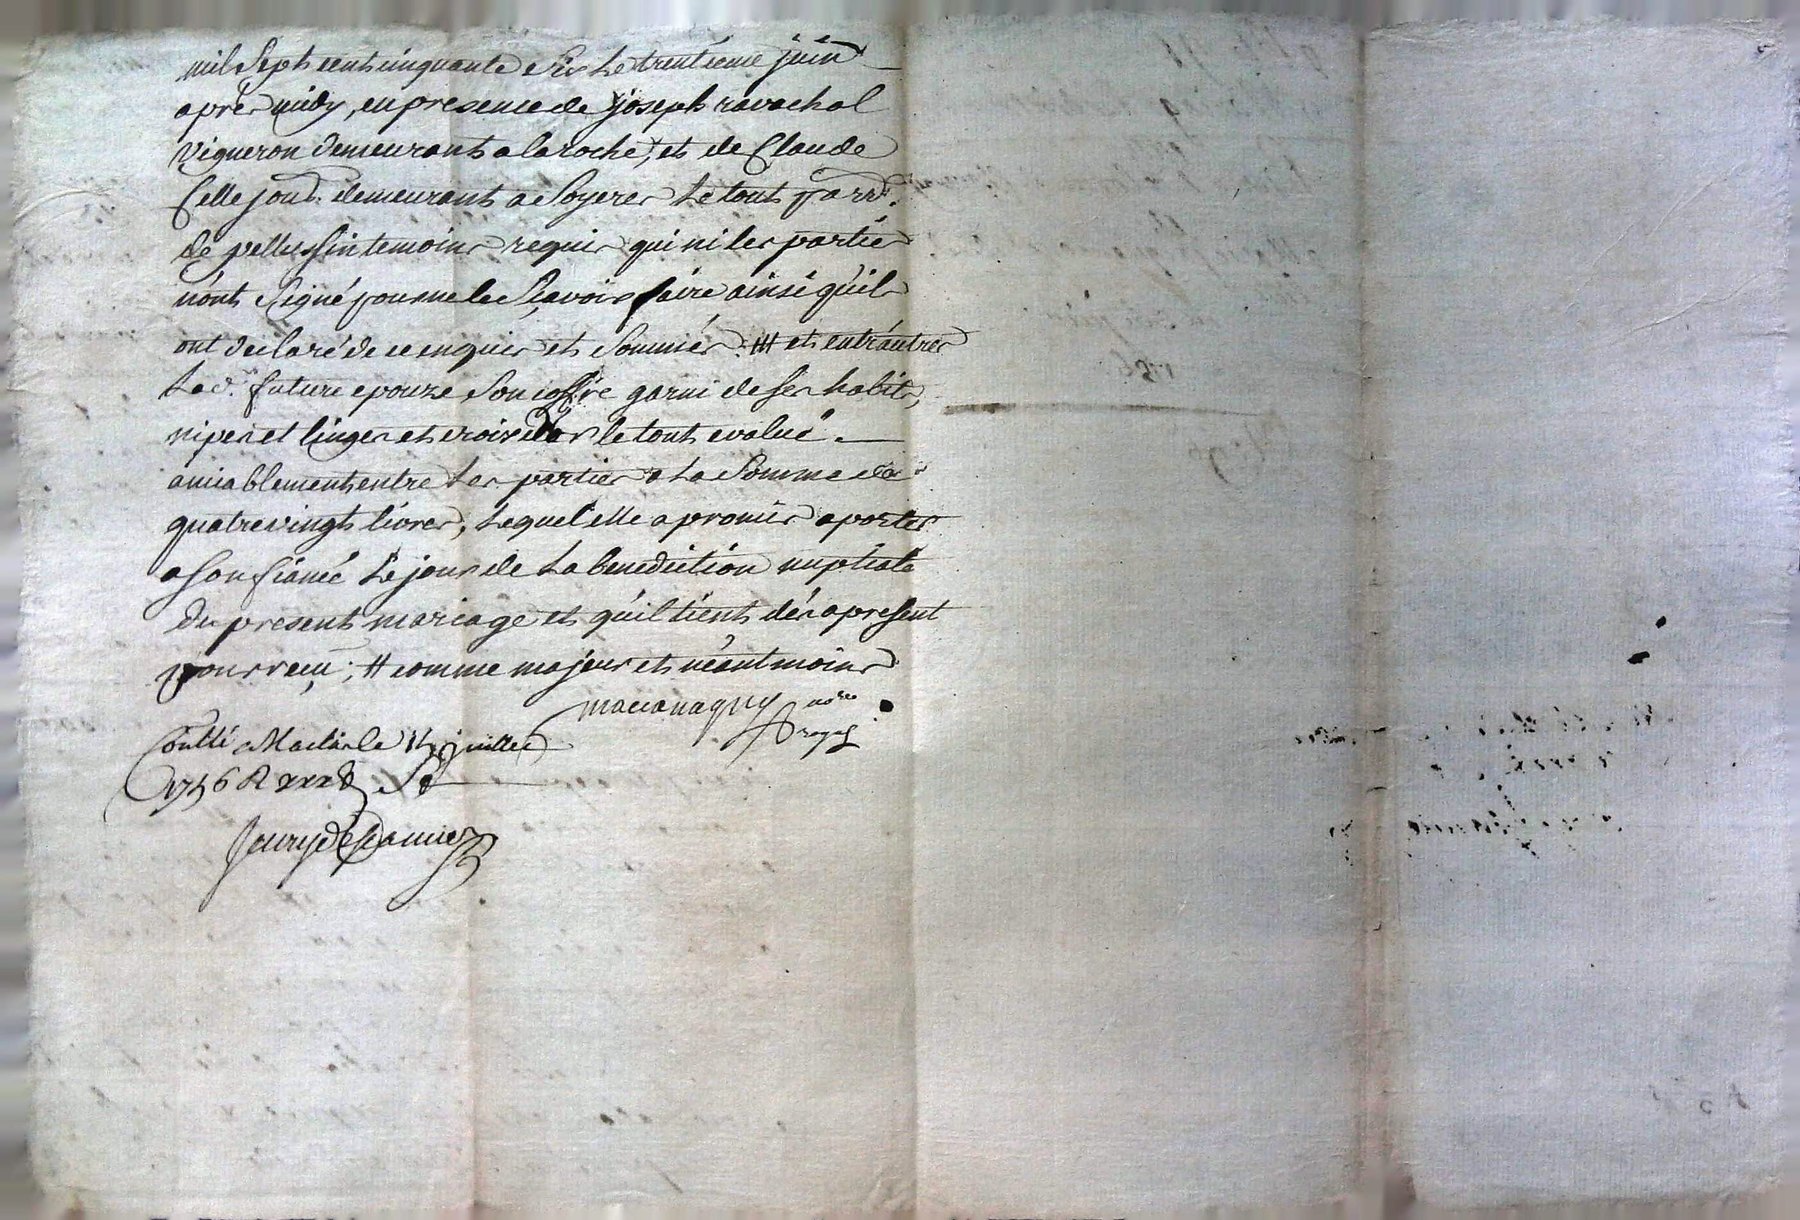 mil sept cent cinquante six le trentieme juin
apres midy, en presence de joseph ravachol
vigneron demeurant a la roche, et de Claude
Celle jour. demeurant a Soyeres le tout parr.
de pellussin temoins requis qui ni les parties
n'ont signé pour ne le sçavoir faire ainsi qu'ils
ont declaré de ce enquis et sommés. # et entr'autres
lad. future epouze son coffre garni de ses habits,
nipes et linges et croix d'or le tout evalué
amiablement entre les parties a la somme de
quatre vingt livres, lequel elle a promis aporter
a son fiancé le jour de la benediction nuptiale
du present mariage et qu'il tient dés a present
pour reçu; # comme majeur et néantmoins
no.re
royal
Conllé a Maclas le juillet
1756 R